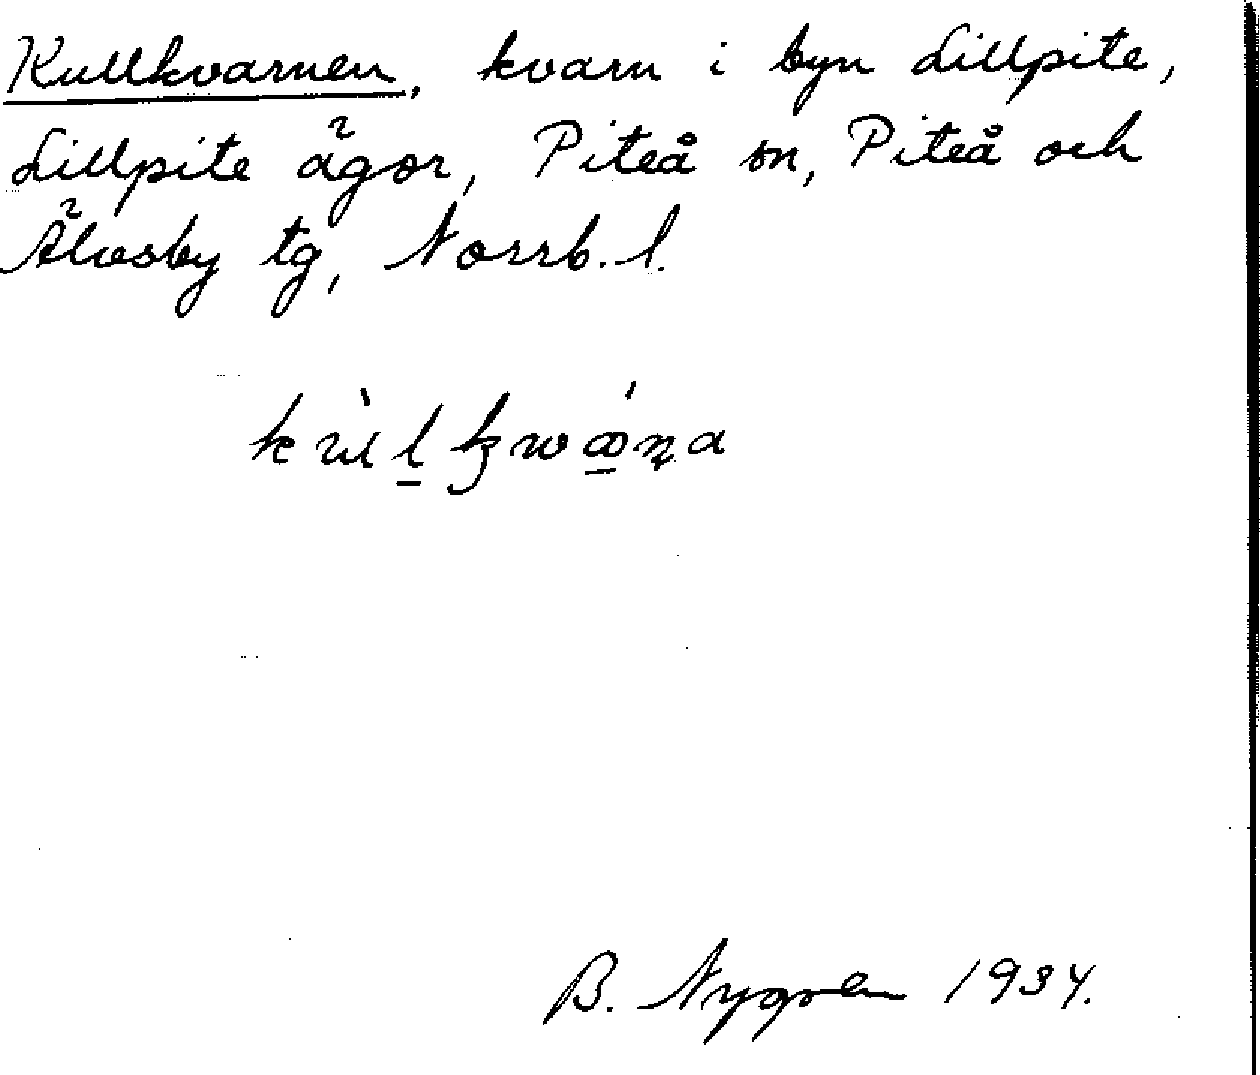 Kullkvarnen, kvarn i byn Lillpite,
Lillpite ägor, Piteå sn, Piteå och
Älvsby tg, Norrb. l.
B. Nygren 1934.